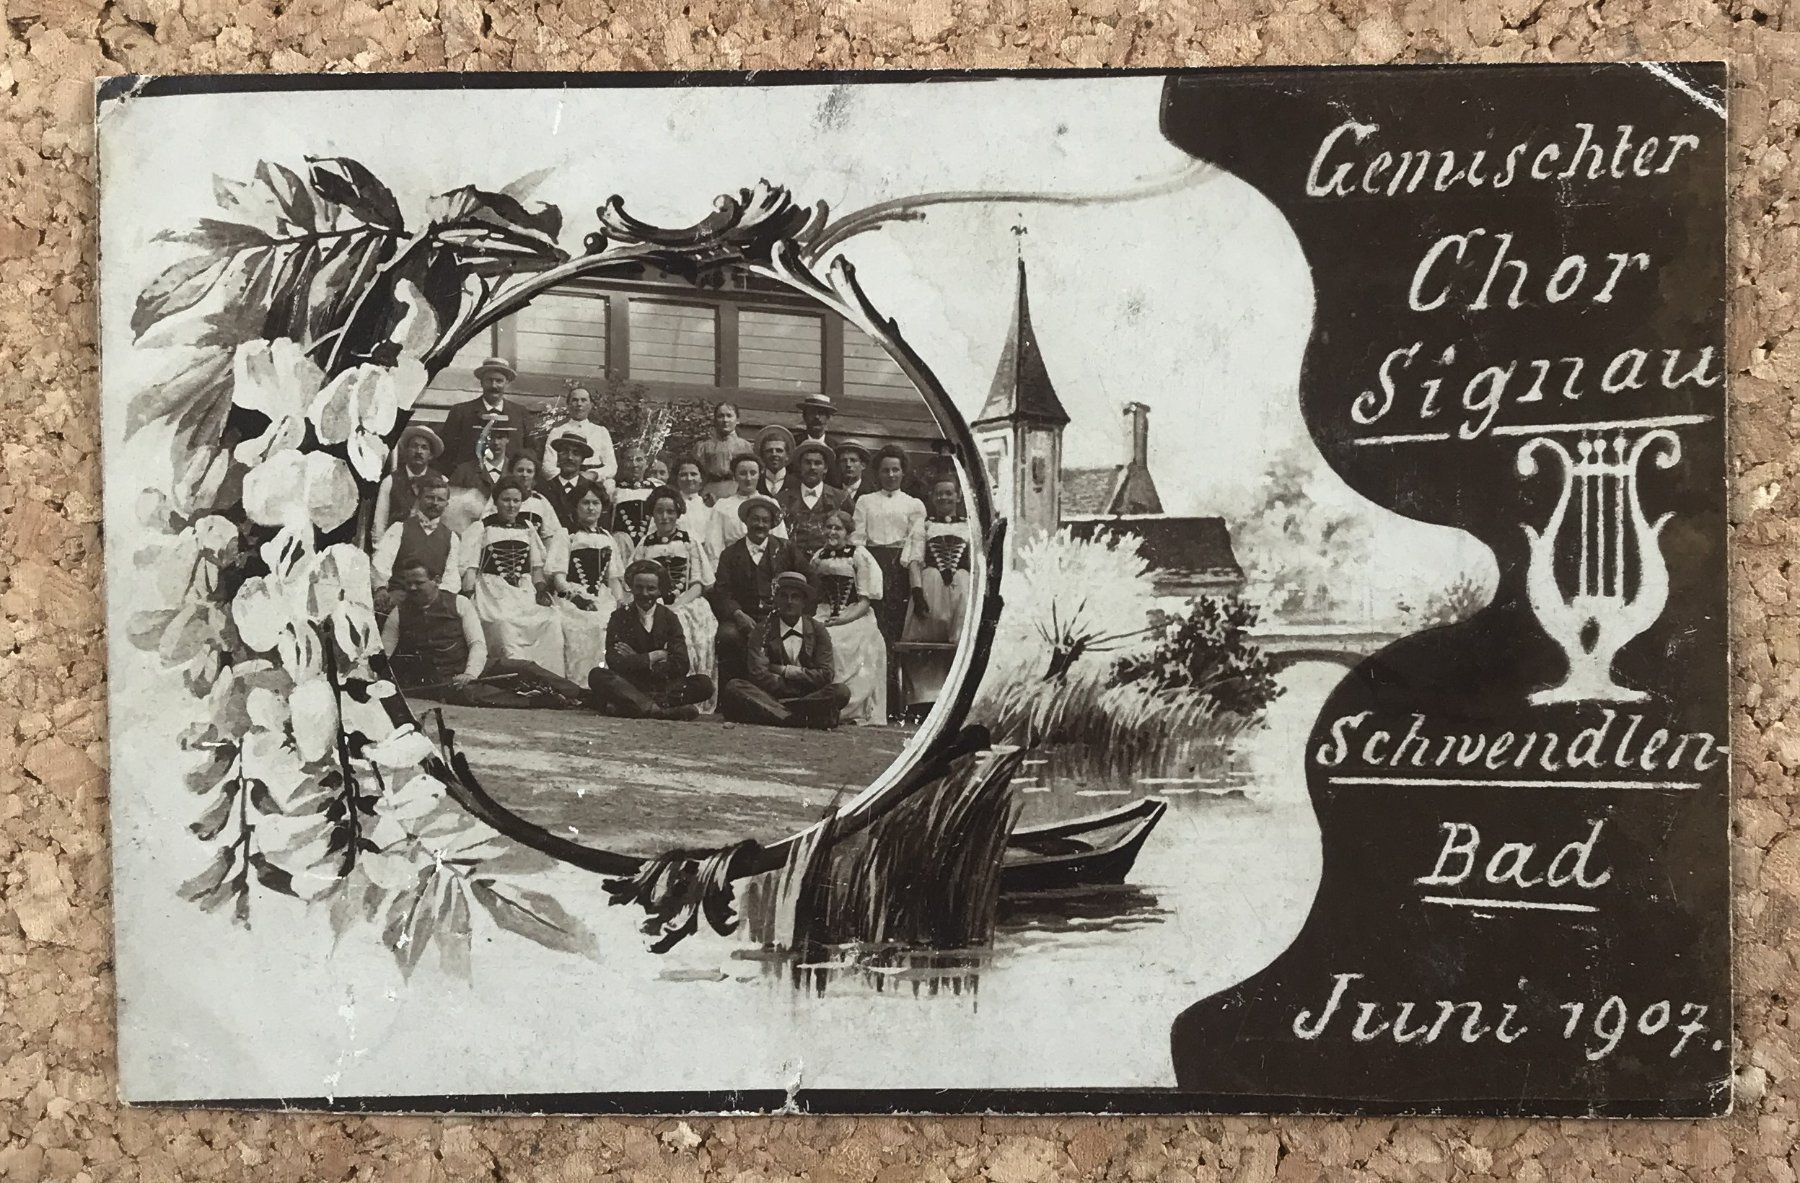 Gemischter
Chor
Signau
Schwendlen-
Bad
Juni 1907.